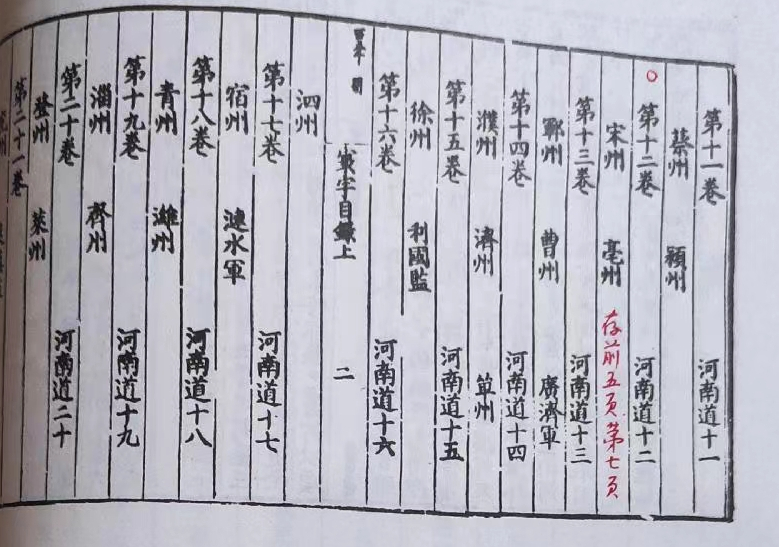 第十一卷 河南道十一
蔡州 頴州
第十二卷 河南道十二
宋州 亳州 存前五页第七页
第十三卷 河南道十三
鄆州 曹州 廣濟軍
第十四卷 河南道十四
濮州 濟州 單州
第十五卷 河南道十五
徐州 利國監
第十六卷 河南道十六
寰宇目録上 二
泗州
第十七卷 河南道十七
宿州 漣水軍
第十八卷 河南道十八
青州 濰州
第十九卷 河南道十九
淄州 齊州
第二十卷 河南道二十
登州 萊州
第二十一卷